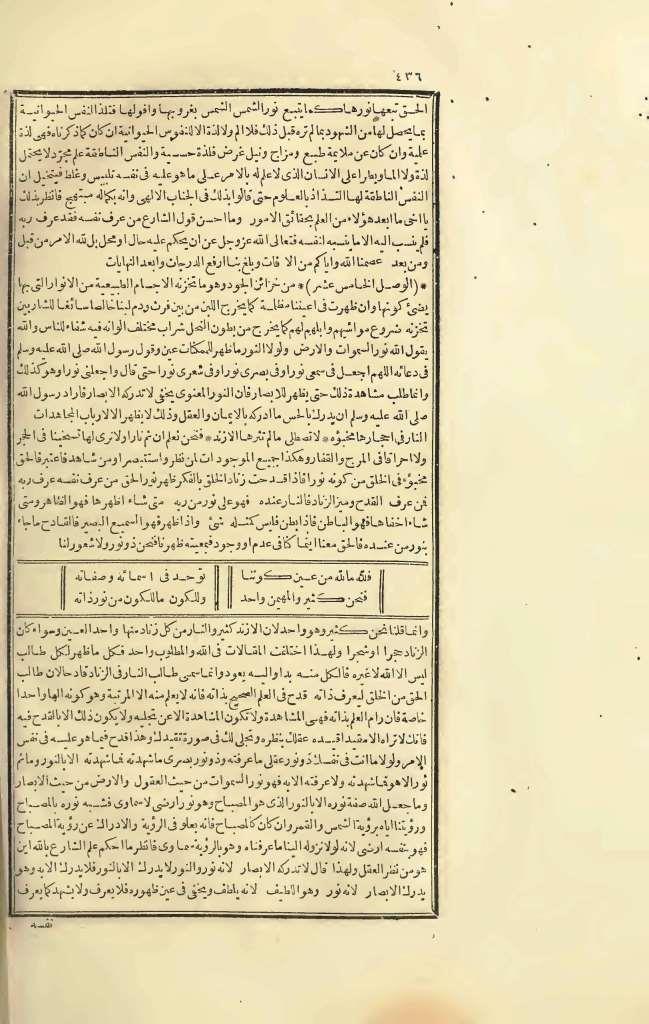 ٤٣٦
الحق تبعها نورها كما يتبع نور الشمس الشمس بغروبها وافولها فتلذ النفس الحيوانية
بما يحصل لها من الشهود بمالم تره قبل ذلك فلا ألم ولا لذة الا للنفوس الحيوانية ان كان كما ذكرناه فهى لذة
علمية وان كان عن ملايمة طبع ومزاج ونيل غرض فلذة حسية والنفس الناطقة علم مجرد لا يحتمل
لذة ولا ألما ويطرأ على الانسان الذى لاعلم له بالامر على ما هو عليه فى نفسه تلبيس وغلط فيتخيل ان
النفس الناطقة لها التذاذ بالعلوم حتى قالوا بذلك فى الجناب الالهى وانه بكماله مبتهج فانظر بذلك
يا اخى ما ابعد هؤلاء من العلم بحقائق الامور وما احسن قول الشارع من عرف نفسه فقد عرف ربه
فلم ينسب اليه الا ما ينسبه لنفسه فتعالى الله عزوجل عن ان يحكم عليه حال او محل بل لله الامر من قبل
ومن بعد عصمنا الله واياكم من الآفات وبلغ بنا ارفع الدرجات وابعد النهايات
*(الوصل الخامس عشر)* من خزائن الجود وهو ما تخزنه الاجسام الطبيعية من الانوار التى بها
يضئ كونها وان ظهرت فى اعيننا مظلمة كما يخرج اللبن من بين فرث ودم لبنا خالصا سائغا للشاربين
تخزنه ضروع مواشيهم وابلهم لهم كما يخرج من بطون النحل شراب مختلف الوانه فيه شفاء للناس والله
يقول الله نور السموات والارض ولولا النور ما ظهر للممكنات عين وقول رسول الله صلى الله عليه وسلم
فى دعائه اللهم اجعل فى سمعى نورا وفى بصرى نورا وفى شعرى نورا حتى قال واجعلنى نورا وهو كذلك
وانما طلب مشاهدة ذلك حتى يظهر للابصار فان النور المعنوى يخفى لا تدركه الابصار فاراد رسول الله
صلى الله عليه وسلم ان يدرك بالحس ما ادركه بالايمان والعقل وذلك لا يظهر الا لارباب المجاهدات
النار فى احجارها مخبؤه * لا تصطلى مالم تثرها الازند * فنحن نعلم ان ثم نارا ولا نرى لها تسخينا فى الحجر
ولا احراقا فى المرخ والعفار وهكذا جميع الموجودات لمن نظر واستبصر او من شاهد فاعتبر فالحق
مخبؤ فى الخلق من كونه نورا فاذا قدحت زناد الخلق بالفكر ظهر نور الحق من عرف نفسه عرف ربه
فمن عرف القدح وميز الزناد فالنار عنده فهو على نور من ربه متى شاء اظهرها فهو الظاهر ومتى
شاء اخفاها فهو الباطن فاذا بطن فليس كمثله شئ واذا ظهر فهو السميع البصير فالقادح ما جاء
بنور من عنده فالحق معنا اينما كنا فى عدم او وجود فبمعيته ظهرنا فنحن ذو نور ولا شعور لنا
فلله ما لله من عين كوننا توحد فى اسمائه وصفاته
فنحن كثير والمهيمن واحد وللكون ما للكون من نور ذاته
وانما قلنا نحن كثير وهو واحد لان الازند كثير والنار من كل زناد منها واحد العين وسواء كان
الزناد حجرا او شجرا ولهذا اختلفت المقالات فى الله والمطلوب واحد فكل ما ظهر لكل طالب
ليس الا الله لا غيره فالكل منه بدا واليه يعود وانما سمى طالب النار فى الزناد قادحا لان طالب
الحق من الخلق ليعرف ذاته قدح فى العلم الصحيح بذاته فانه لا يعلم منه الا المرتبة وهو كونه الها واحدا
خاصة فان رام العلم بذاته فهى المشاهدة ولا تكون المشاهدة الا عن تجليه ولا يكون ذلك الا بالقدح فيه
فانك لا تراه الا مقيدا قيده عقلك بنظره وتجلى لك فى صورة تقييدك وهذا قدح فيما هو عليه فى نفس
الامر ولولا ما انت فى نفسك ذو نور عقلى ما عرفته وذو نور بصرى ما شهدته فما شهدته الا بالنور وما ثم
نور الا هو فما شهدته ولا عرفته الا به فهو نور السموات من حيث العقول والارض من حيث الابصار
وما جعل الله صفة نوره الا بالنور الذى هو المصباح وهو نور ارضى لا سماوى فشبه نوره بالمصباح
ورؤيتنا اياه برؤية الشمس والقمر وان كان كالمصباح فانه يعلو فى الرؤية والادراك عن رؤية المصباح
فهو بنفسه ارضى لانه لولا نزوله الينا ما عرفناه وهو بالرؤية سماوى فانظر ما احكم علم الشارع بالله اين
هو من نظر العقل ولهذا قال لا تدركه الابصار لانه نور والنور لا يدرك الا بالنور فلا يدرك الا به وهو
يدرك الابصار لانه نور وهو اللطيف لانه يلطف ويخفى فى عين ظهوره فلا يعرف ولا يشهد كما يعرف